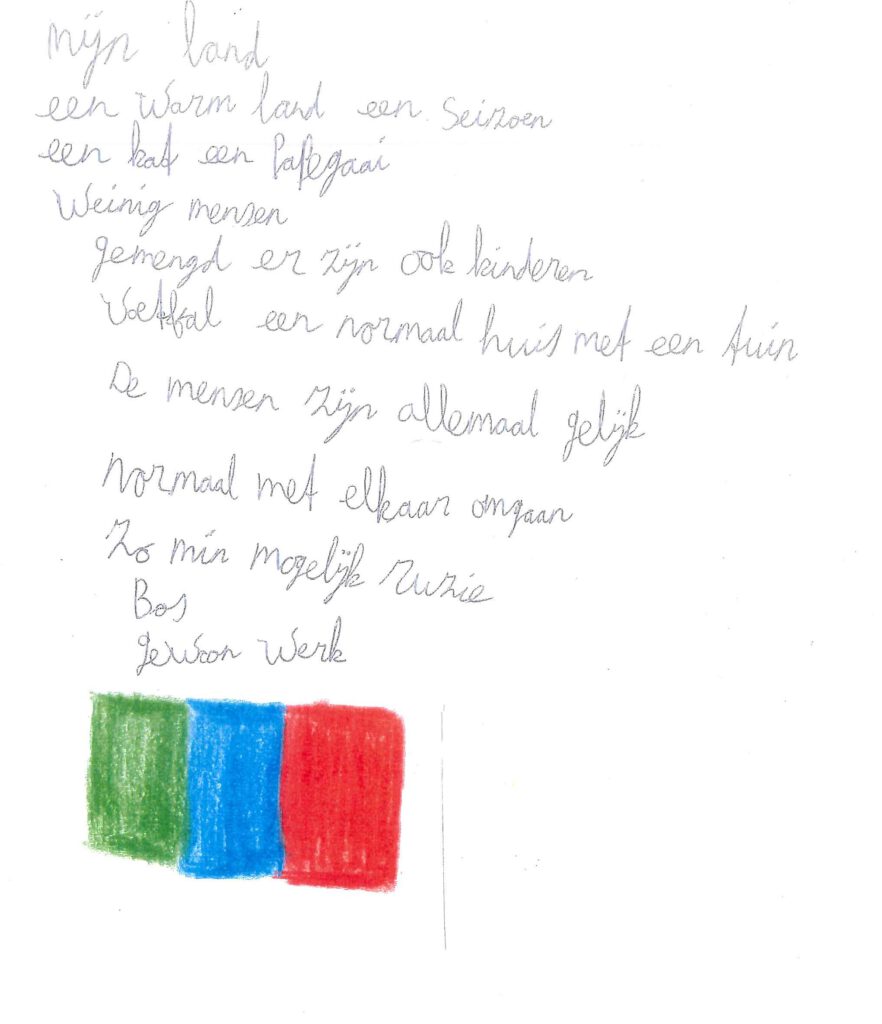 mijn land
een warm land een seizoen
een kat een Papegaai
Weinig mensen
gemengd er zijn ook kinderen
Voetbal een normaal huis met een tuin
De mensen zijn allemaal gelijk
normaal met elkaar omgaan
Zo min mogelijk ruzie
Bos
gewoon werk